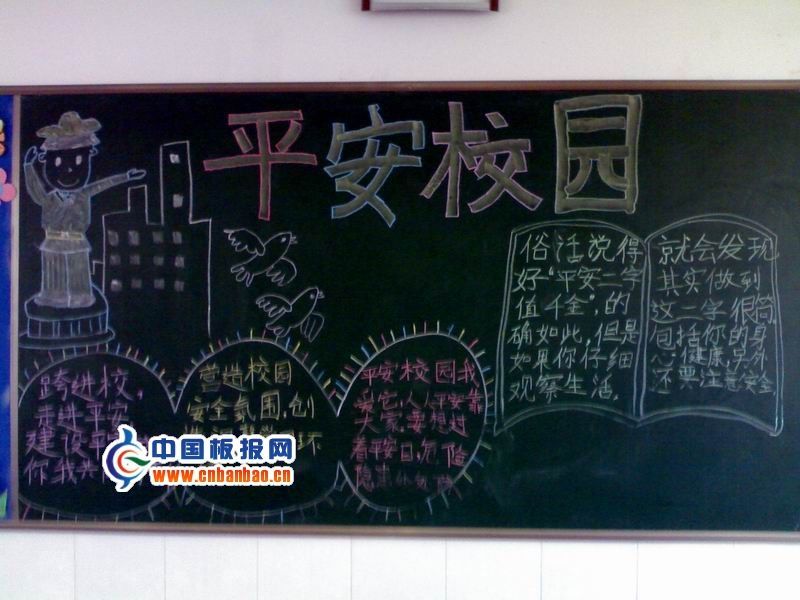 平安校园
俗活说得
好“平安二字
值千金”,的
确如此,但是
如果你仔细
观察生活,
就会发现
其实做到
这二字很简
包括你的身
心健康,另外
还要注意安全
跨进校,
走进平安
建设平
你我共
营造校园
安全氛围,创
环
平安校园我
爱它,人人平安靠
大家,要想过
着平安日,危险
隐患
中国板报网
www.cnbanbao.cn